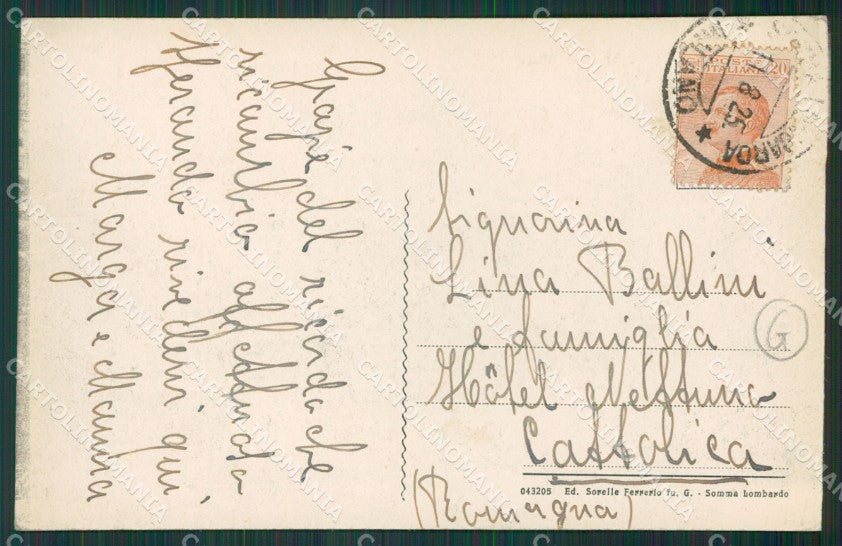 Grazie del ricordo che
ricambio affettuosa
Sperando rivedervi qui
Marga e Mamma
Signorina
Lina Ballini
e famiglia
Hôtel Nettuno
Cattolica
(Romagna)
G
043205 Ed. Sorelle Ferrerio fu. G. - Somma Lombardo
POSTE ITALIANE 20
MILANO
17.8.25
CARTOLINOMANIA